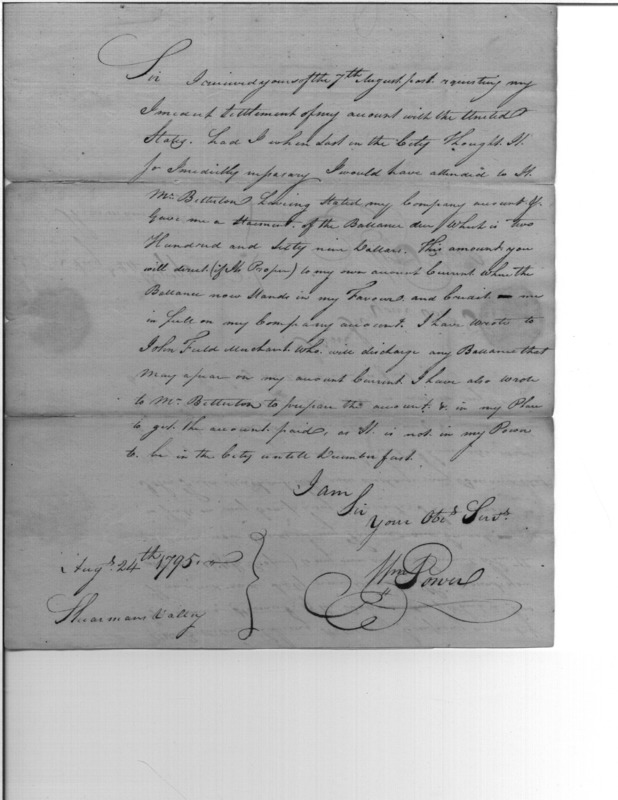 Sir I received yours of the 7th August past requesting my
Imediat Settlement of my account with the United
States. had I when Last in the City Thought It
so Imediatly nessasary I would have attended to It
Mr. Betterton Having Stated my Company account &
Gave me a Statment of the Ballance due Which is two
Hundred and Sixty nine Dollars. This amount you
will direct (if It Proper) to my own account Current when the
Ballance now Stands in my Favour and Credit me
in full on my Company account. I have wrote to
John Field Merchant Who will discharge any Ballance that
May apear on my account Current. I have also wrote
to Mr. Betterton to prepare the account & in my Place
to get the account paid, as It is not in my Power
to be in the City untill December first.
I am
Sir
your Obt. Servt.
Wm Power
Augt. 24th 1795
Shearmans Valley